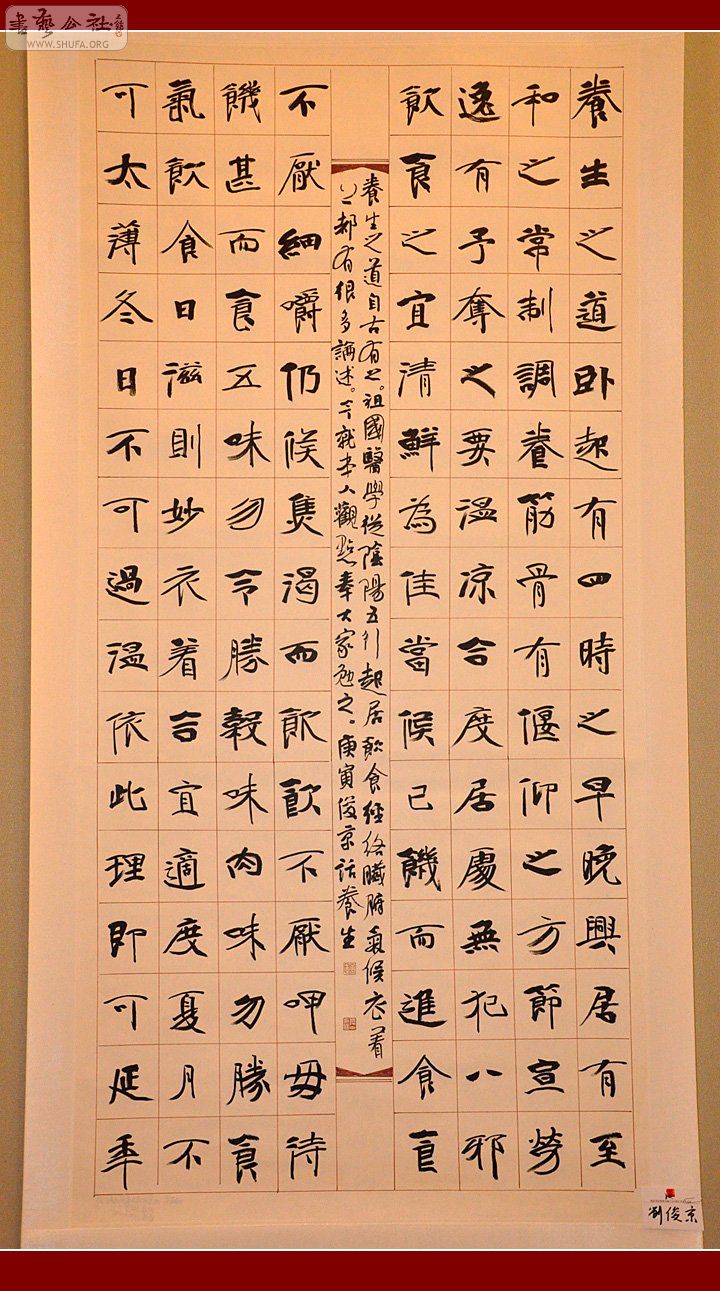 書藝公社
WWW.SHUFA.ORG
養生之道卧起有四時之早晚興居有至
和之常制調養筋骨有偃仰之方節宣勞
逸有予奪之要温凉合度居處無犯八邪
飲食之宜清鮮為佳當候已饑而進食食
養生之道自古有之。祖國醫學從陰陽五行起居飲食經絡臟腑氣候衣着
上都有很多論述。今就本人觀點奉大家勉之。庚寅俊京話養生
不厭細嚼仍候焦渴而飲飲不厭呷毋待
饑甚而食五味勿令勝穀味肉味勿勝食
氣飲食日滋則妙衣着合宜適度夏月不
可太薄冬日不可過温依此理即可延年
劉俊京